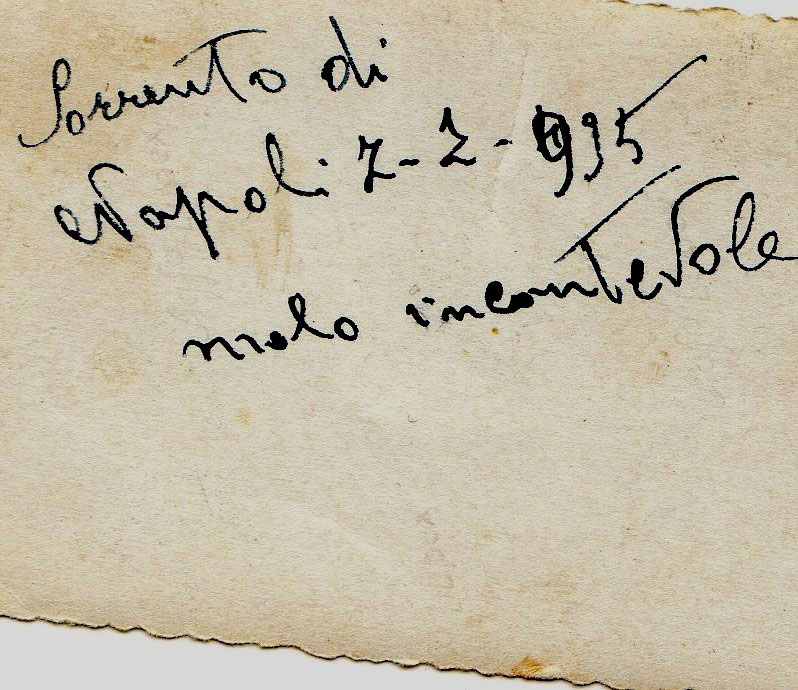 Sorrento di
Napoli 7-2-935
molo incantevole